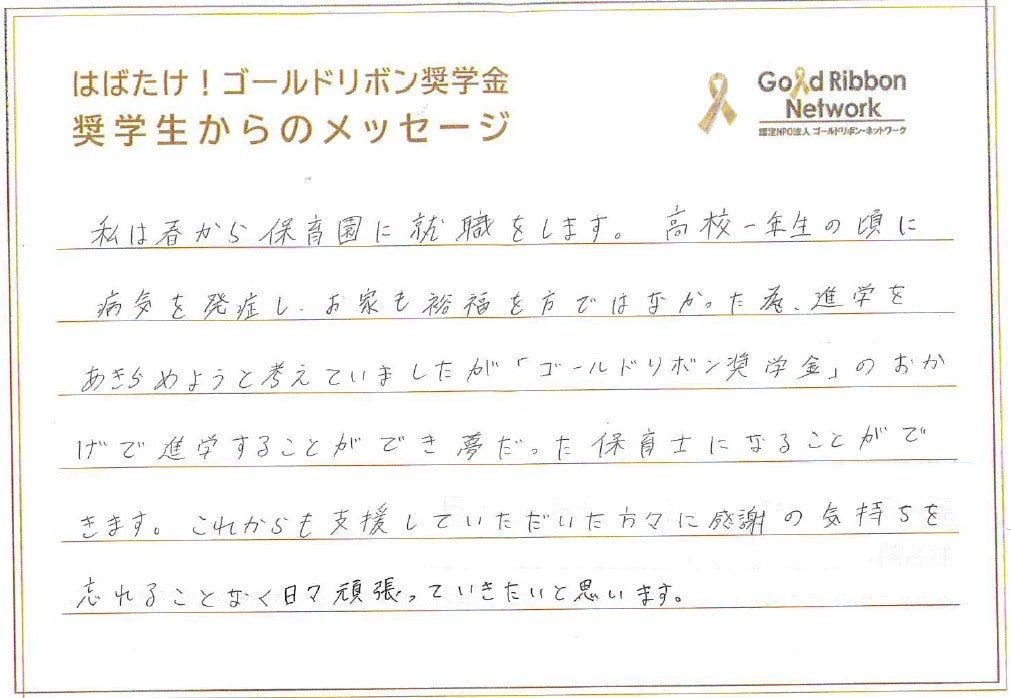 はばたけ！ゴールドリボン奨学金
奨学生からのメッセージ
Gold Ribbon
Network
認定NPO法人 ゴールドリボン・ネットワーク
私は春から保育園に就職をします。高校一年生の頃に
病気を発症し、お家も裕福を方ではなかった為、進学を
あきらめようと考えていましたが「ゴールドリボン奨学金」のおか
げで進学することができ夢だった保育士になることがで
きます。これからも支援していただいた方々に感謝の気持ちを
忘れることなく日々頑張っていきたいと思います。